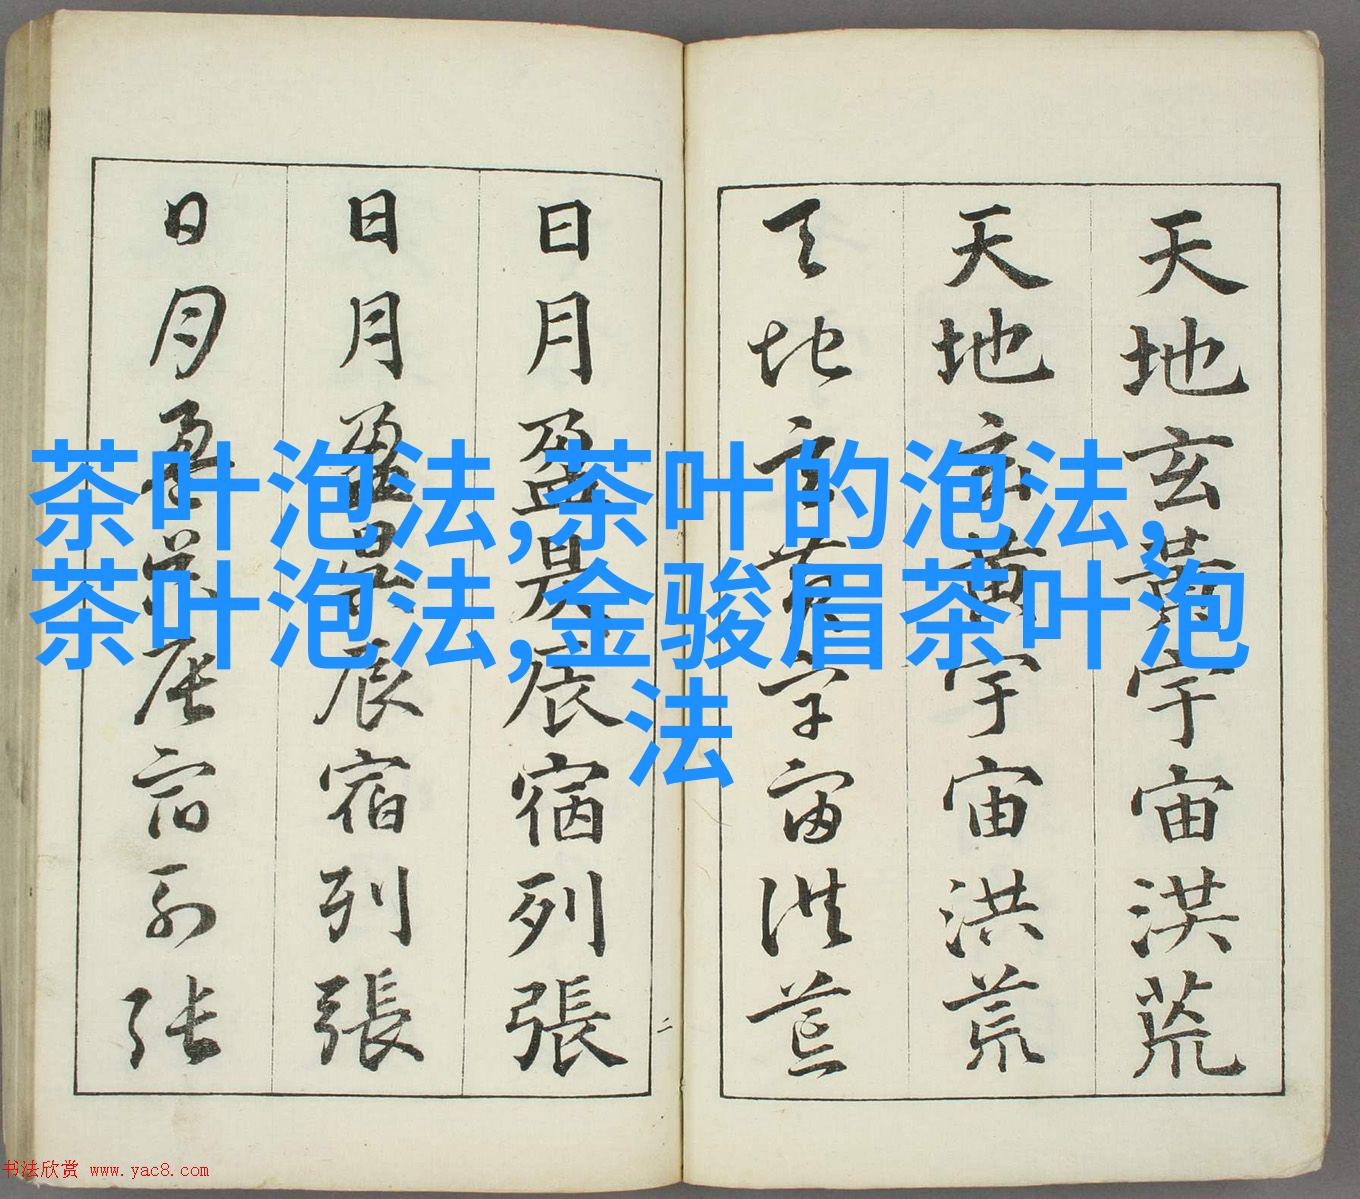 天地玄黃宇宙洪荒
天地玄黃宇宙洪荒
天地玄黃宇宙洪荒
日月盈昃辰宿列張
日月盈昃辰宿列張
日月盈昃辰宿列張
二
茶叶泡法,茶叶的泡法,
茶叶泡法,金骏眉茶叶泡
法
书法欣赏 www.yac8.com